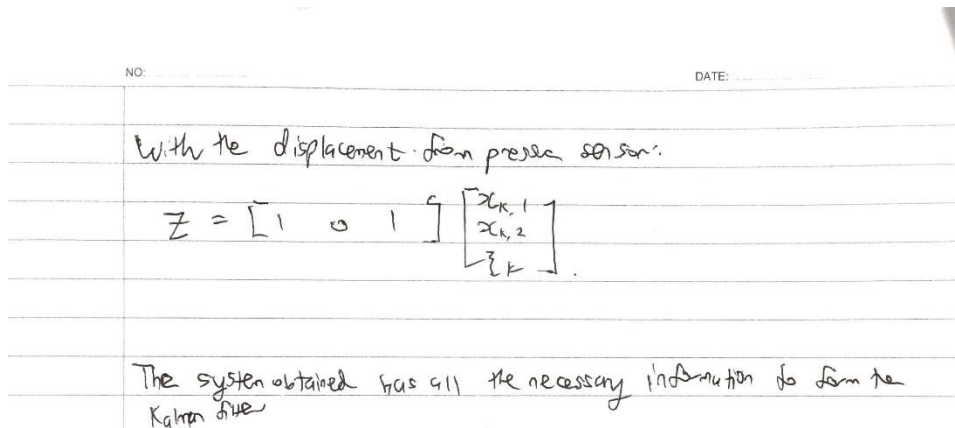 NO:
DATE:
With the displacement from pressure sensor:
Z = [1 0 1] [x_{k,1}
x_{k,2}
ξ_k].
The system obtained has all the necessary information to form the
Kalman filter